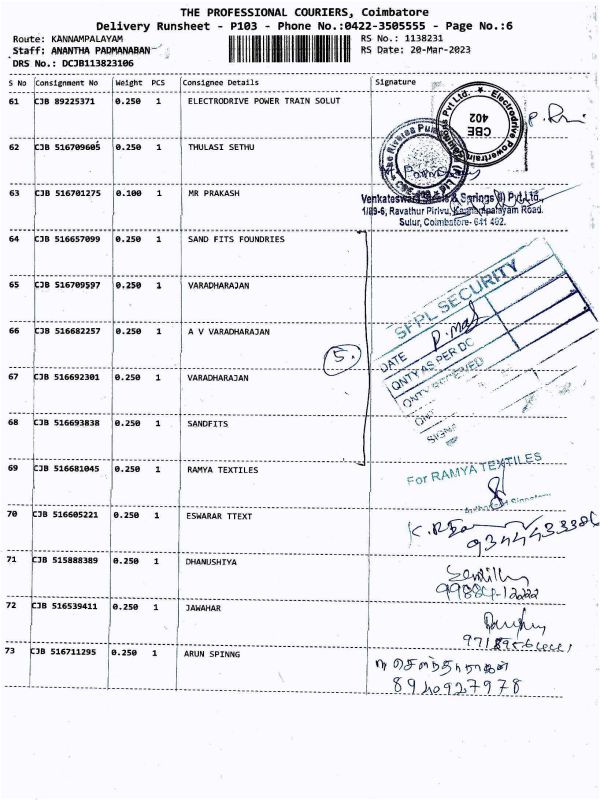 THE PROFESSIONAL COURIERS, Coimbatore
Delivery Runsheet - P103 - Phone No.:0422-3505555 - Page No.:6
Route: KANNAMPALAYAM RS No.: 1138231
Staff: ANANTHA PADMANABAN RS Date: 20-Mar-2023
DRS No.: DCJB113823106
S No Consignment No Weight PCS Consignee Details Signature
61 CJB 89225371 0.250 1 ELECTRODRIVE POWER TRAIN SOLUT
Electrodrive Powertrain Pvt Ltd.
CBE
402
62 CJB 516709605 0.250 1 THULASI SETHU
63 CJB 516701275 0.100 1 MR PRAKASH
Venkateswara Steels & Springs (I) Pvt Ltd.,
1/89-6, Ravathur Pirivu, Kannampalayam Road.
Sulur, Coimbatore- 641 402.
64 CJB 516657099 0.250 1 SAND FITS FOUNDRIES
65 CJB 516709597 0.250 1 VARADHARAJAN
66 CJB 516682257 0.250 1 A V VARADHARAJAN
5.
SFPL SECURITY
DATE
QNTY AS PER DC
QNTY RECEIVED
67 CJB 516692301 0.250 1 VARADHARAJAN
68 CJB 516693838 0.250 1 SANDFITS
69 CJB 516681045 0.250 1 RAMYA TEXTILES
For RAMYA TEXTILES
Authorised Signatory
70 CJB 516605221 0.250 1 ESWARAR TTEXT
71 CJB 515888389 0.250 1 DHANUSHIYA
72 CJB 516539411 0.250 1 JAWAHAR
73 CJB 516711295 0.250 1 ARUN SPINNG
8940927978